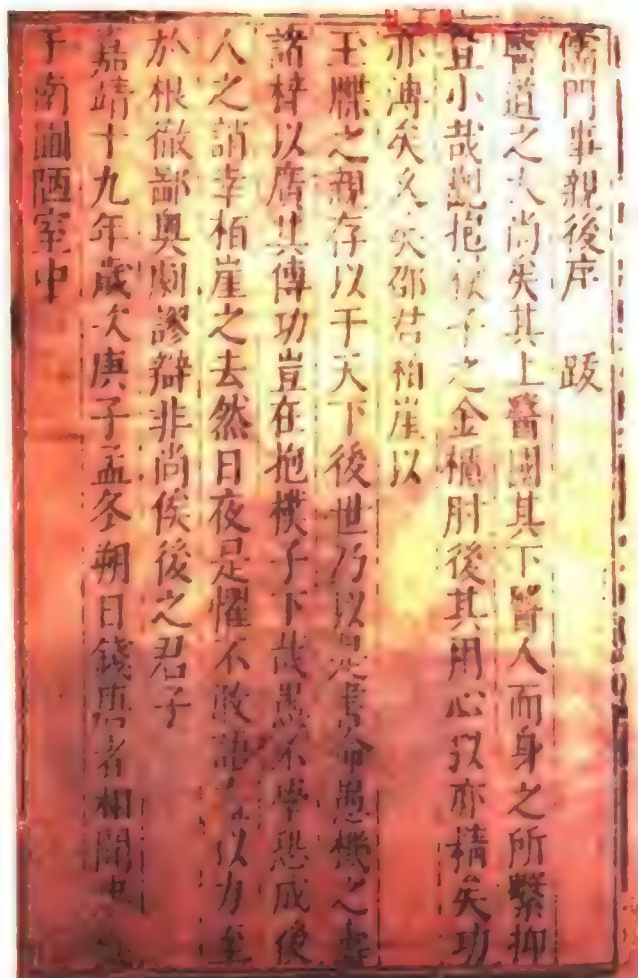 儒門事親後序 跋
醫道之大尚矣其上醫國其下醫人而身之所繫抑
豈小哉觀抱朴子之金櫃肘後其用心以亦精矣功
亦溥矣久矣邵君柏崖以
王牒之親存以于天下後世乃以是書命愚機之
諸梓以廣其傳功豈在抱樸子下哉愚不學恐成後
人之誚幸柏崖之去然日夜是懼不敢語 以 至
於根徹鄙與劇謬辯非尚俟後之君子
嘉靖十九年歲次庚子孟冬朔日錢唐者相聞忠
于南圃陋室中